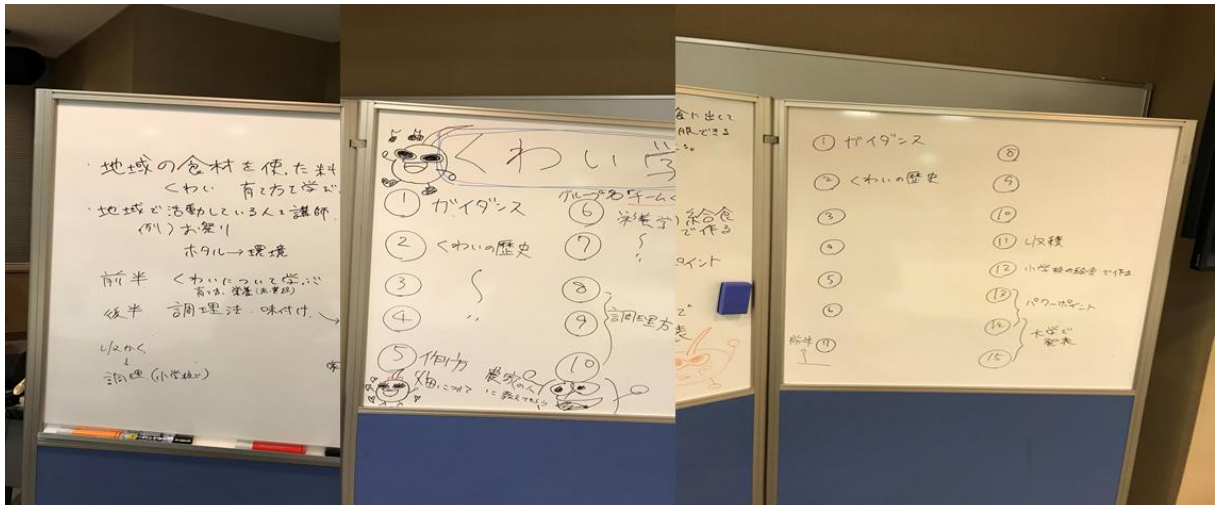 ・地域の食材を使った料
くわい 育て方を学び、
・地域で活動している人を講師
(例) お祭り
ホタル→環境
前半 くわいについて学ぶ
育て方、栄養
後半 調理法・味付け
↓
調理(小学校で)
くわい学
グループ名「チームく
① ガイダンス
② くわいの歴史
③
④ 〃
⑤ 作り方
畑について
農家の人
に教えてもらう
⑥ 栄養学
給食
で作る
⑦ 〃
⑧
⑨
調理方
⑩
食に出して
克服できる
る。
ポイント
で
表
① ガイダンス
② くわいの歴史
③
④
⑤
⑥
前半 ⑦
⑧
⑨
⑩
⑪ 収穫
⑫ 小学校の給食で作る
⑬
パワーポイント
⑭
大学で
発表
⑮